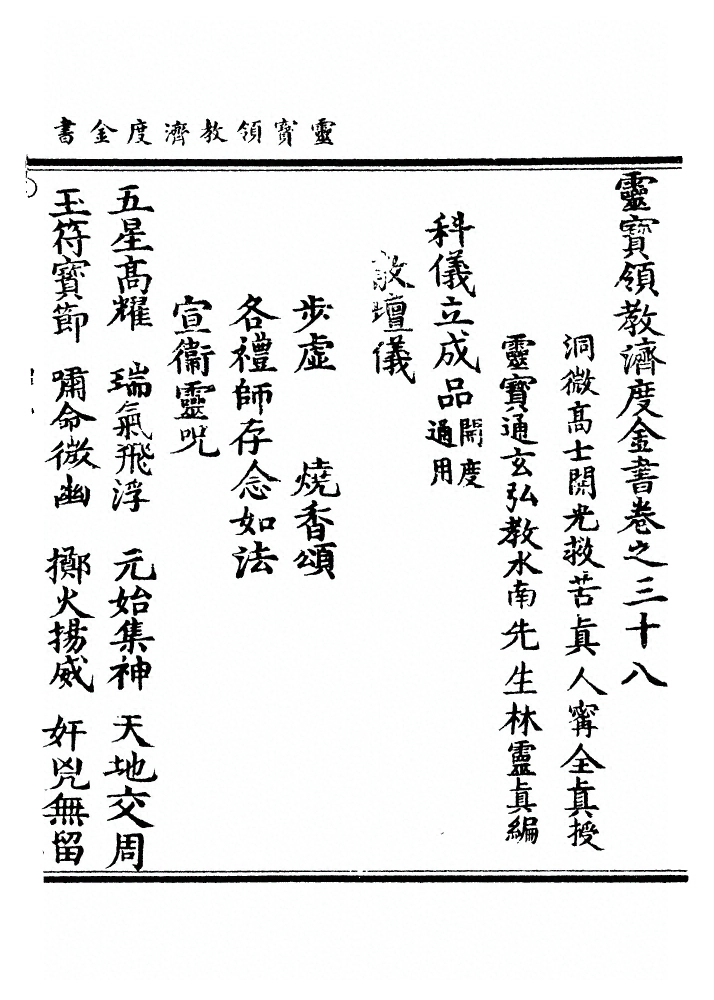 靈寶領教濟度金書
靈寶領教濟度金書卷之三十八
洞微高士開光救苦眞人寗全眞授
靈寶通玄弘教水南先生林靈眞編
科儀立成品開度通用
敷壇儀
步虛　燒香頌
各禮師存念如法
宣衞靈呪
五星高耀　瑞氣飛浮　元始集神　天地交周
玉符寶節　嘯命徵幽　擲火揚威　奸兇無留